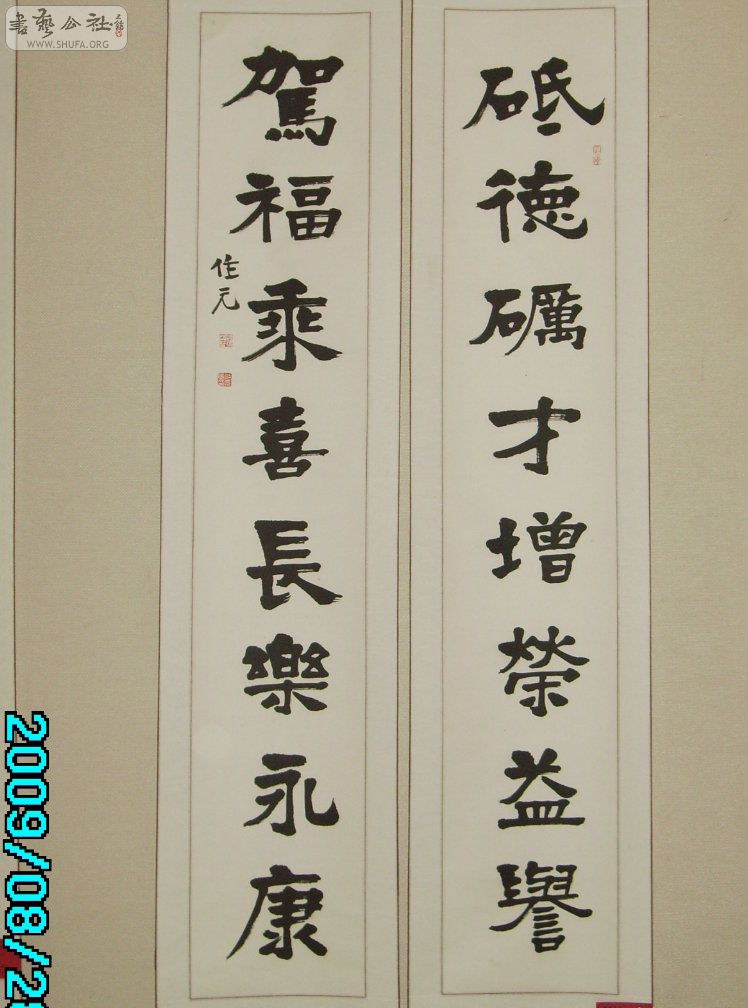 砥德礪才增榮益譽
駕福乘喜長樂永康
隹元
書藝公社
WWW.SHUFA.ORG
2009/08/2